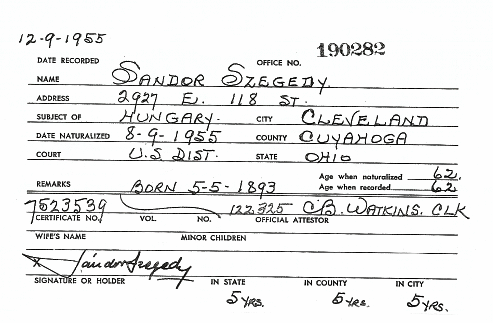 12-9-1955 190282
DATE RECORDED OFFICE NO.
NAME SANDOR SZEGEDY.
ADDRESS 2927 E. 118 ST.
SUBJECT OF HUNGARY. CITY CLEVELAND
DATE NATURALIZED 8-9-1955 COUNTY CUYAHOGA
COURT U.S DIST. STATE OHIO
Age when naturalized 62.
REMARKS BORN 5-5-1893 Age when recorded 62
7523539 122325 C.B. WATKINS. CLK
CERTIFICATE NO. VOL. NO. OFFICIAL ATTESTOR
WIFE'S NAME MINOR CHILDREN
x Sándor Szegedy
SIGNATURE OR HOLDER IN STATE IN COUNTY IN CITY
5 YRS. 5 YRS. 5 YRS.